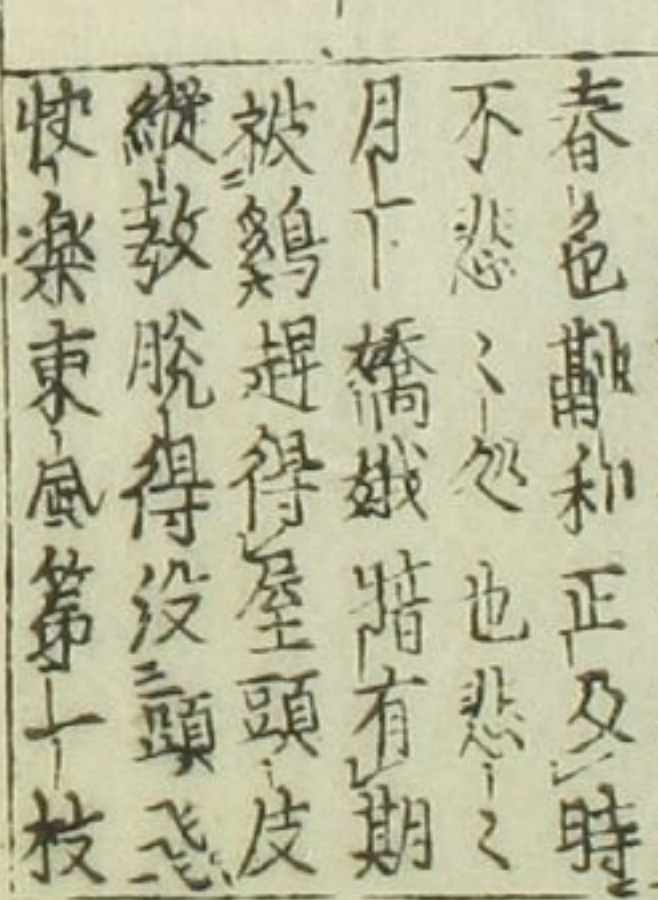 春色融和正及時
不悲〻処也悲〻
月下嬌娥暗有期
被鷄趕得屋頭皮
縱教脫得没頭
快楽東風第一枝